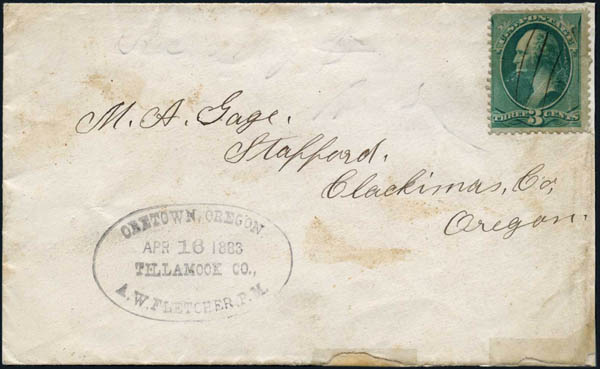 U.S. POSTAGE
THREE 3 CENTS
M. A. Gage.
Stafford.
Clackimas, Co,
Oregon.
ORETOWN, OREGON.
APR 16 1883
TILLAMOOK CO.,
A. W. FLETCHER, P. M.